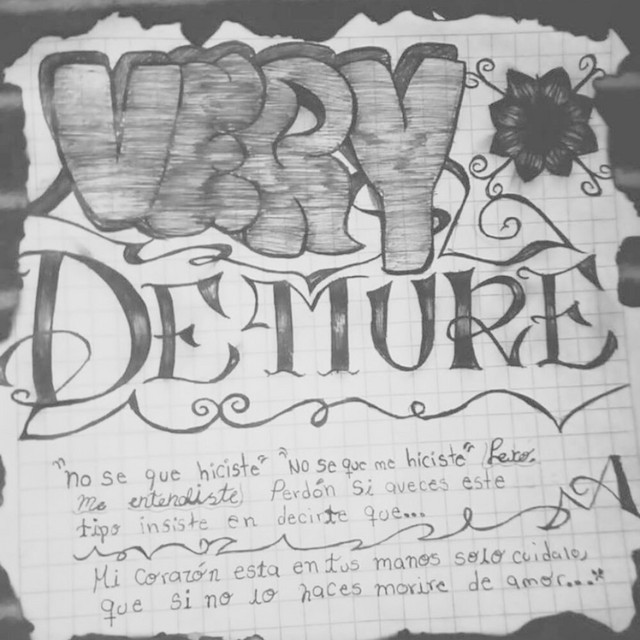 VERY
DEMURE
"no se que hiciste" "No se que me hiciste" (Pero
me entendiste) Perdón Si aveces este
tipo insiste en decirte que...
A
Mi Corazón esta en tus manos solo cuidalo,
que si no lo haces morire de amor....*